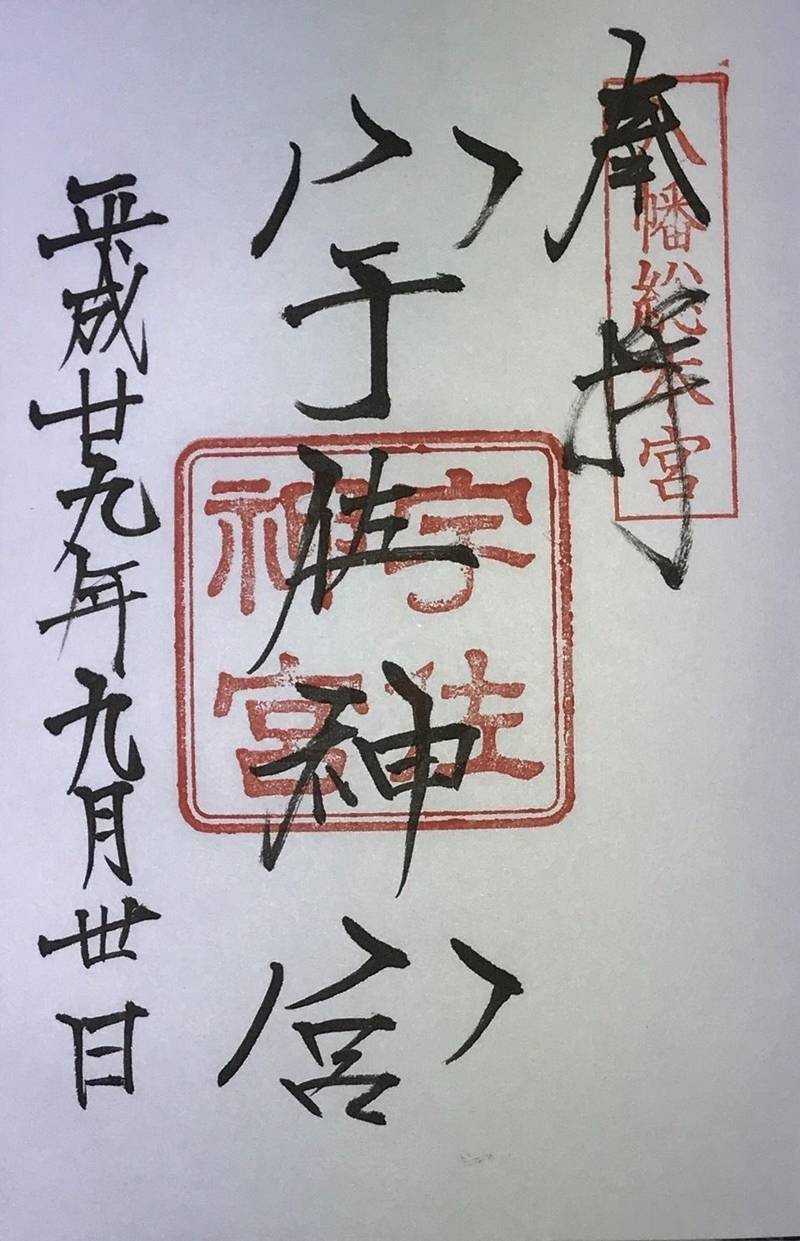 奉拝
八幡総本宮
宇佐神宮
宇佐
神宮
平成廿九年九月卅日